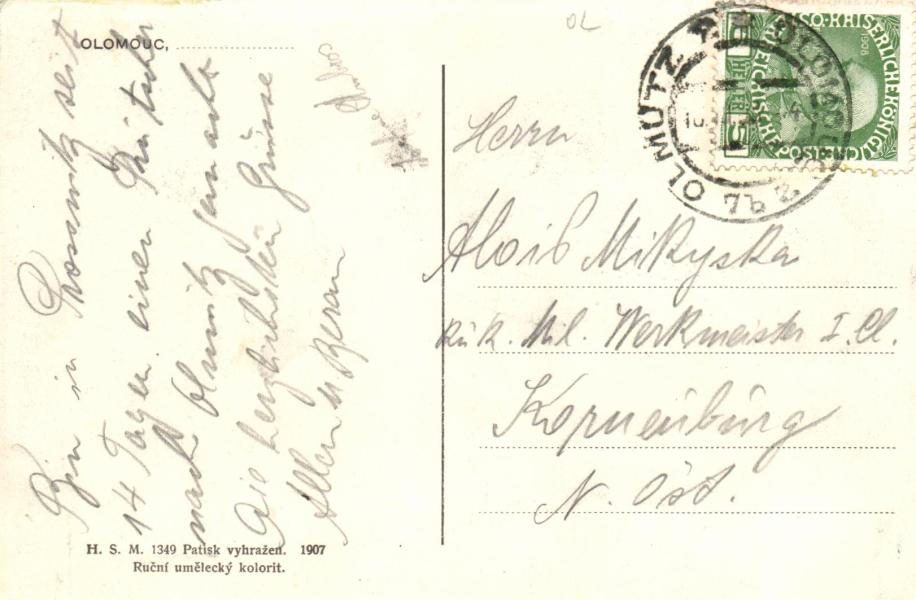 OLOMOUC,
Bin in Prossnitz seit
14 Tagen einen
nach Olmütz gemacht
Die herzlichsten Grüsse
Allen
H. S. M. 1349 Patisk vyhražen. 1907
Ruční umělecký kolorit.
OL
Herrn
Alois Mikyska
k.u.k. Mil. Werkmeister I. Cl.
Korneuburg
N. Öst.
OLMÜTZ
OLOMOUC
KAISERLICHE KÖNIGL
ÖSTERREICHISCHE POST
5 HELLER 5
1908